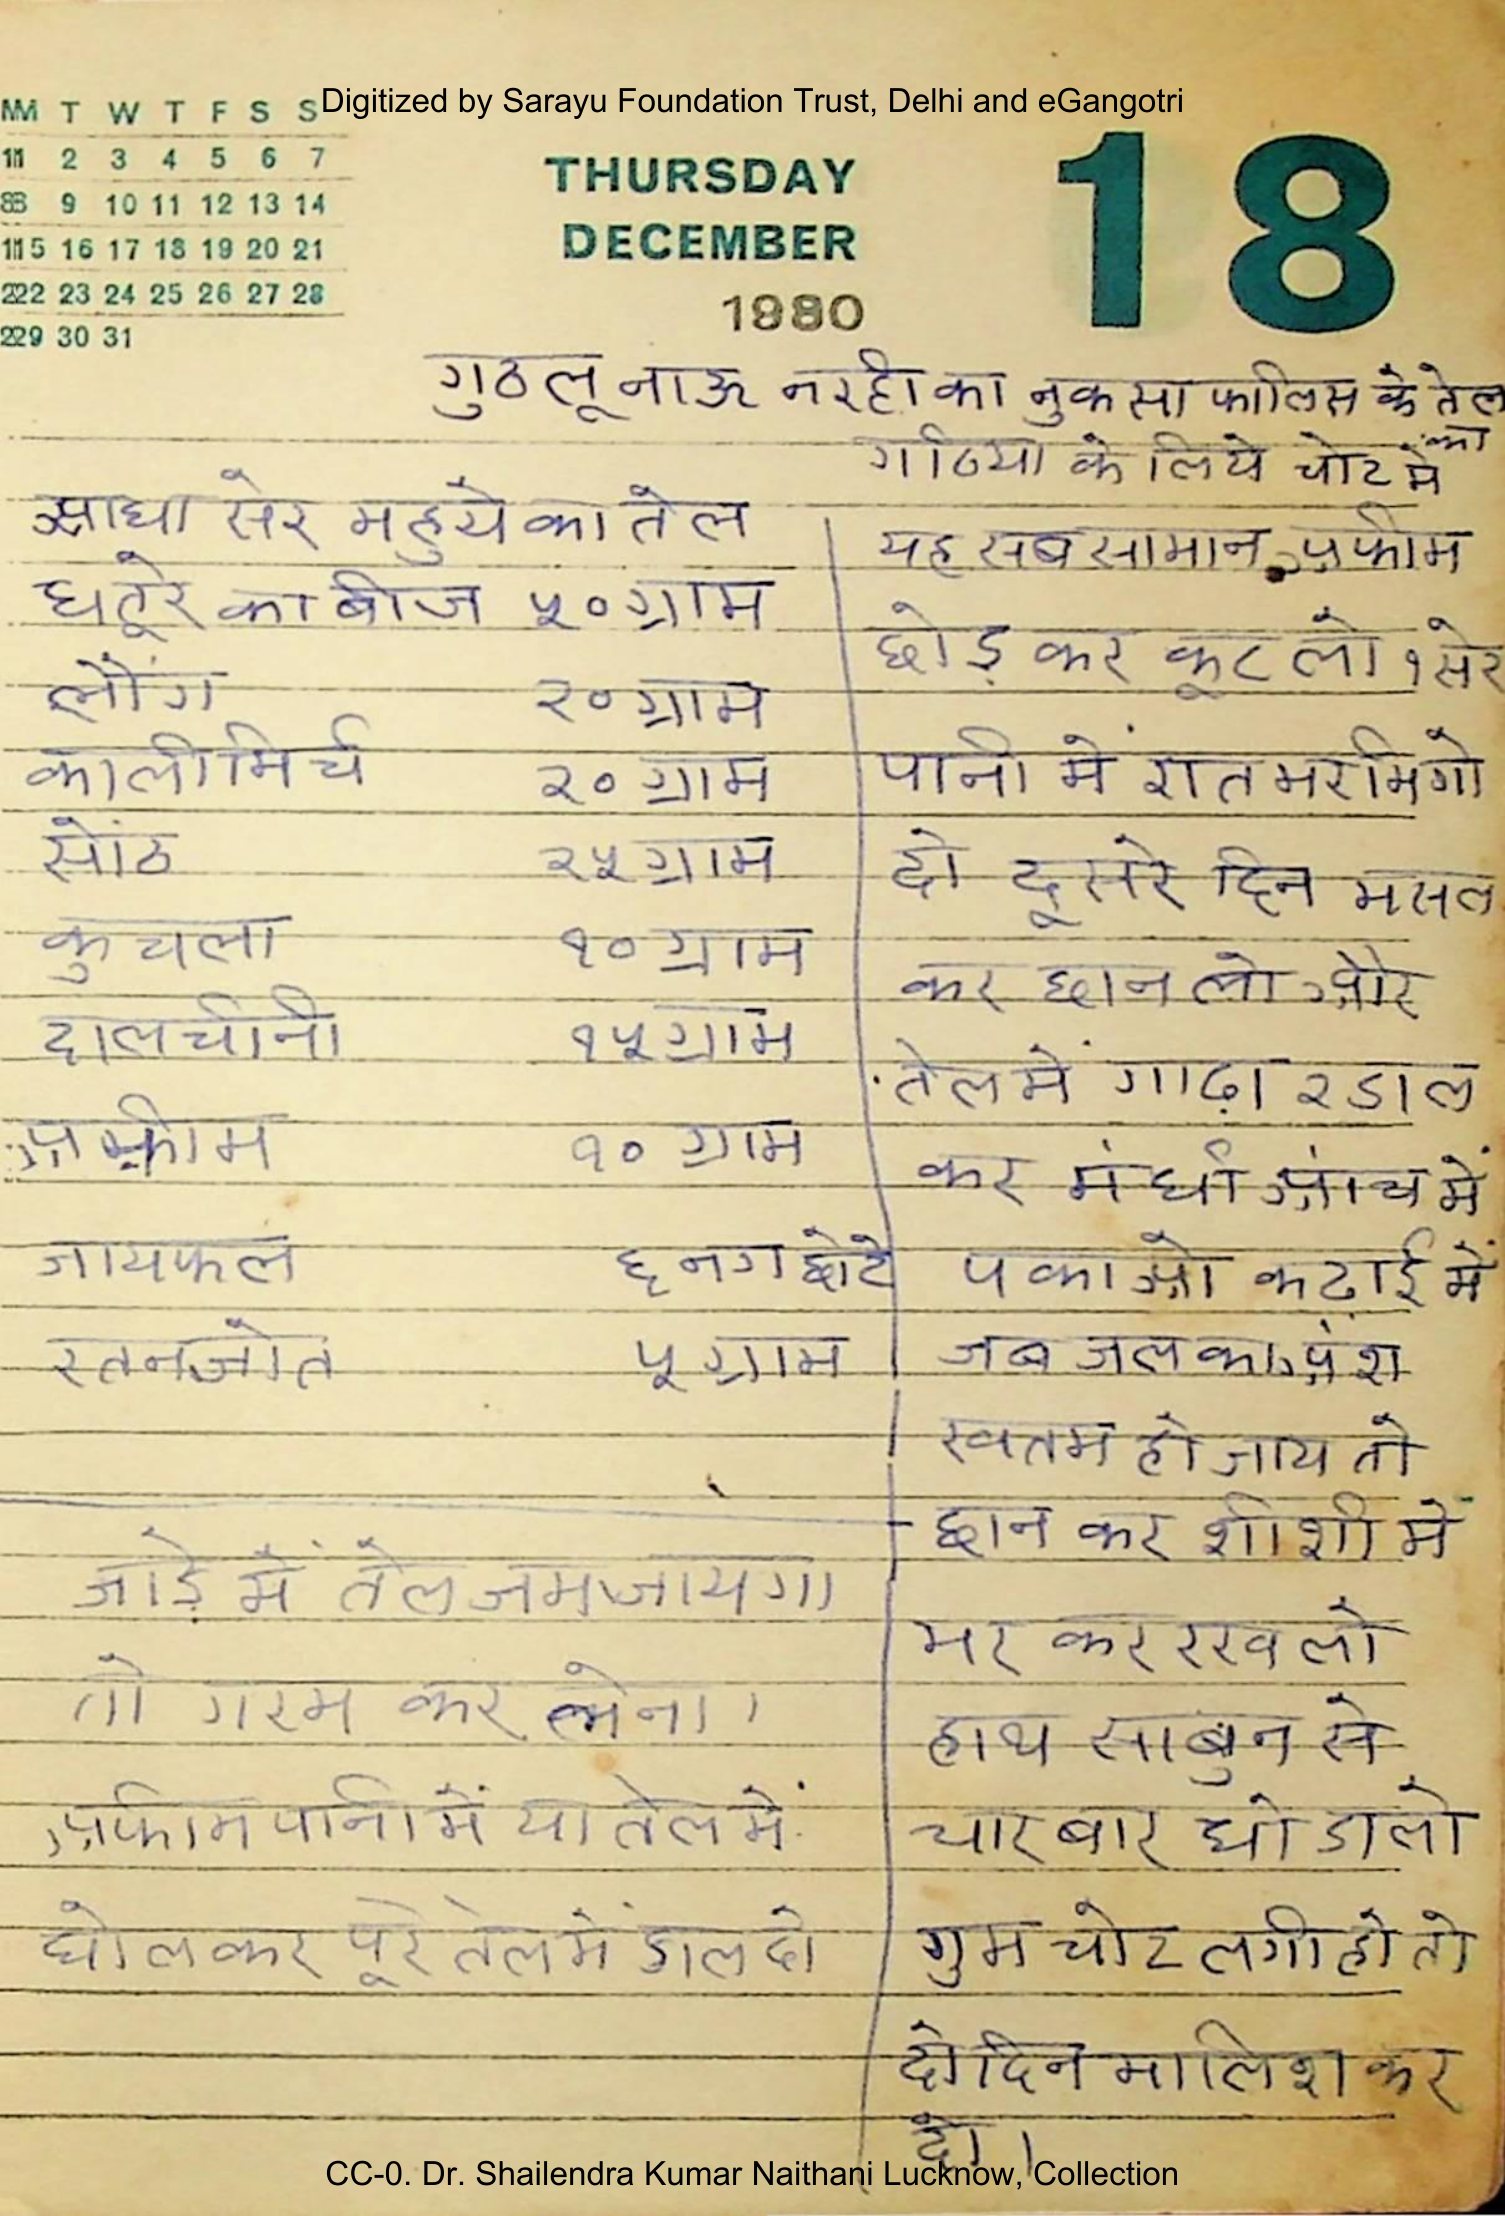 Digitized by Sarayu Foundation Trust, Delhi and eGangotri
M T W T F S S
1 2 3 4 5 6 7
8 9 10 11 12 13 14
15 16 17 18 19 20 21
22 23 24 25 26 27 28
29 30 31
THURSDAY
DECEMBER
1980
18
गुठलू नाऊ नरही का नुकसा फालिस के तेल का
गठिया के लिये चोट में
आधा सेर महुये का तेल
धतूरे का बीज ५० ग्राम
लौंग २० ग्राम
काली मिर्च २० ग्राम
सोंठ २५ ग्राम
कुचला १० ग्राम
दालचीनी १५ ग्राम
अफीम १० ग्राम
जायफल ६ नग छोटे
रतनजोत ५ ग्राम
जाड़े में तेल जम जायगा
तो गरम कर लेना।
अफीम पानी में या तेल में
घोल कर पूरे तेल में डाल दो
यह सब सामान अफीम
छोड़ कर कूट लो १ सेर
पानी में रात भर भिगो
दो दूसरे दिन मसल
कर छान लो और
तेल में गाढ़ा २ डाल
कर मंधी आंच में
पकाओ कढ़ाई में
जब जल का अंश
खतम हो जाय तो
छान कर शीशी में
भर कर रख लो
हाथ साबुन से
चार बार धो डालो
गुम चोट लगी हो तो
दो दिन मालिश कर
दो।
CC-0. Dr. Shailendra Kumar Naithani Lucknow, Collection